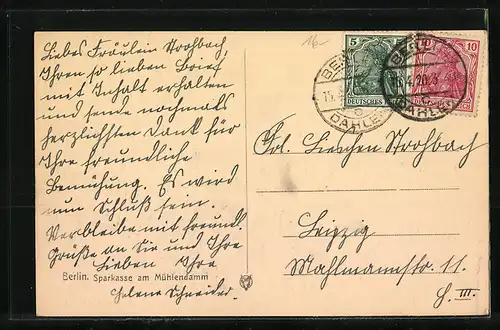 Liebes Fräulein Strohbach,
Ihren so lieben Brief
mit Inhalt erhalten
und sende nochmals
herzlichsten Dank für
Ihre freundliche
Bemühung. Es wird
nun Schluß sein.
Verbleibe mit freundl.
Grüße an Sie und Ihre
Lieben Ihre
Berlin. Sparkasse am Mühlendamm
Helene Schneider.
16-
5
DEUTSCHES
10
BERLIN
15.4.20.
DAHLEM
Frl. Lieschen Strohbach
Leipzig
Mahlmannstr. 11.
H. III.